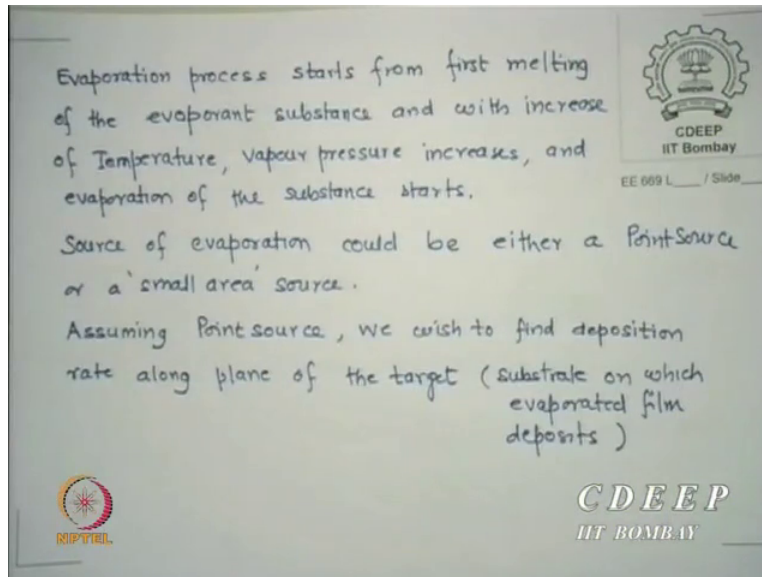 Evaporation process starts from first melting
of the evoporant substance and with increase
of Temperature, vapour pressure increases, and
evaporation of the substance starts.
Source of evaporation could be either a Point Source
or a 'small area' source.
Assuming Point source, we wish to find deposition
rate along plane of the target (substrate on which
evaporated film
deposits)
CDEEP
IIT Bombay
EE 669 L___ / Slide___
NPTEL
CDEEP
IIT BOMBAY